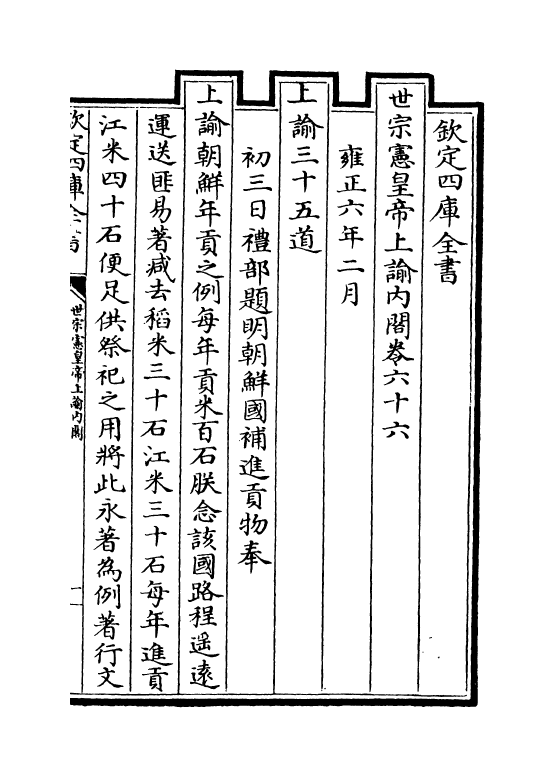 欽定四庫全書
世宗憲皇帝上諭内閣卷六十六
雍正六年二月
上諭三十五道
初三日禮部題明朝鮮國補進貢物奉
上諭朝鮮年貢之例每年貢米百石朕念該國路程遥遠
運送匪易著减去稻米三十石江米三十石每年進貢
江米四十石便足供祭祀之用將此永著為例著行文
欽定四庫全書
世宗憲皇帝上諭内閣
一